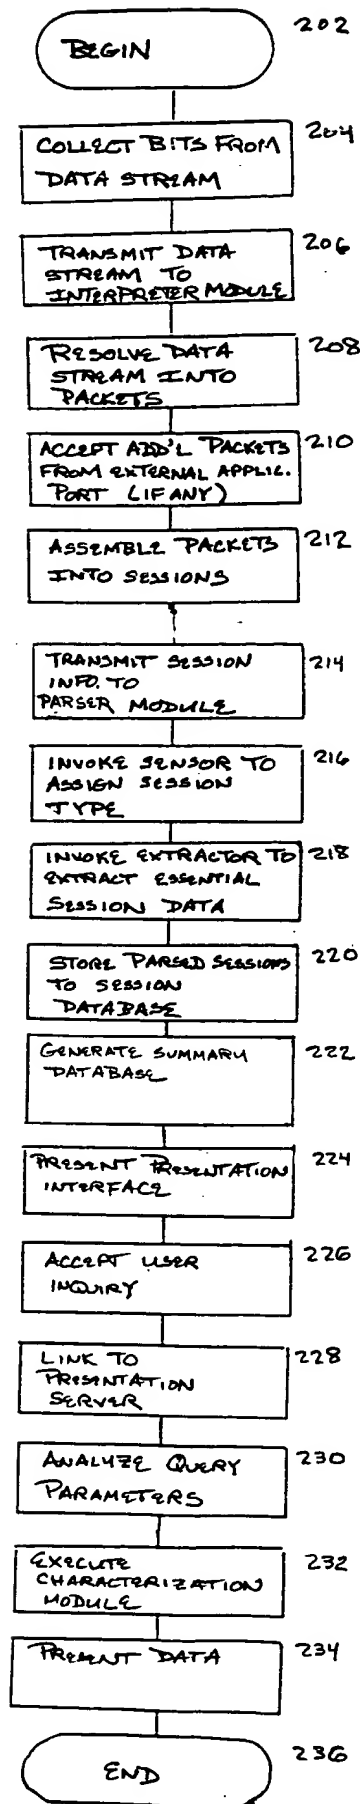 BEGIN 202
COLLECT BITS FROM 204
DATA STREAM
TRANSMIT DATA 206
STREAM TO
INTERPRETER MODULE
RESOLVE DATA 208
STREAM INTO
PACKETS
ACCEPT ADD'L PACKETS 210
FROM EXTERNAL APPLIC.
PORT (IF ANY)
ASSEMBLE PACKETS 212
INTO SESSIONS
TRANSMIT SESSION 214
INFO. TO
PARSER MODULE
INVOKE SENSOR TO 216
ASSIGN SESSION
TYPE
INVOKE EXTRACTOR TO 218
EXTRACT ESSENTIAL
SESSION DATA
STORE PARSED SESSIONS 220
TO SESSION
DATABASE
GENERATE SUMMARY 222
DATABASE
PRESENT PRESENTATION 224
INTERFACE
ACCEPT USER 226
INQUIRY
LINK TO 228
PRESENTATION
SERVER
ANALYZE QUERY 230
PARAMETERS
EXECUTE 232
CHARACTERIZATION
MODULE
PRESENT DATA 234
END 236